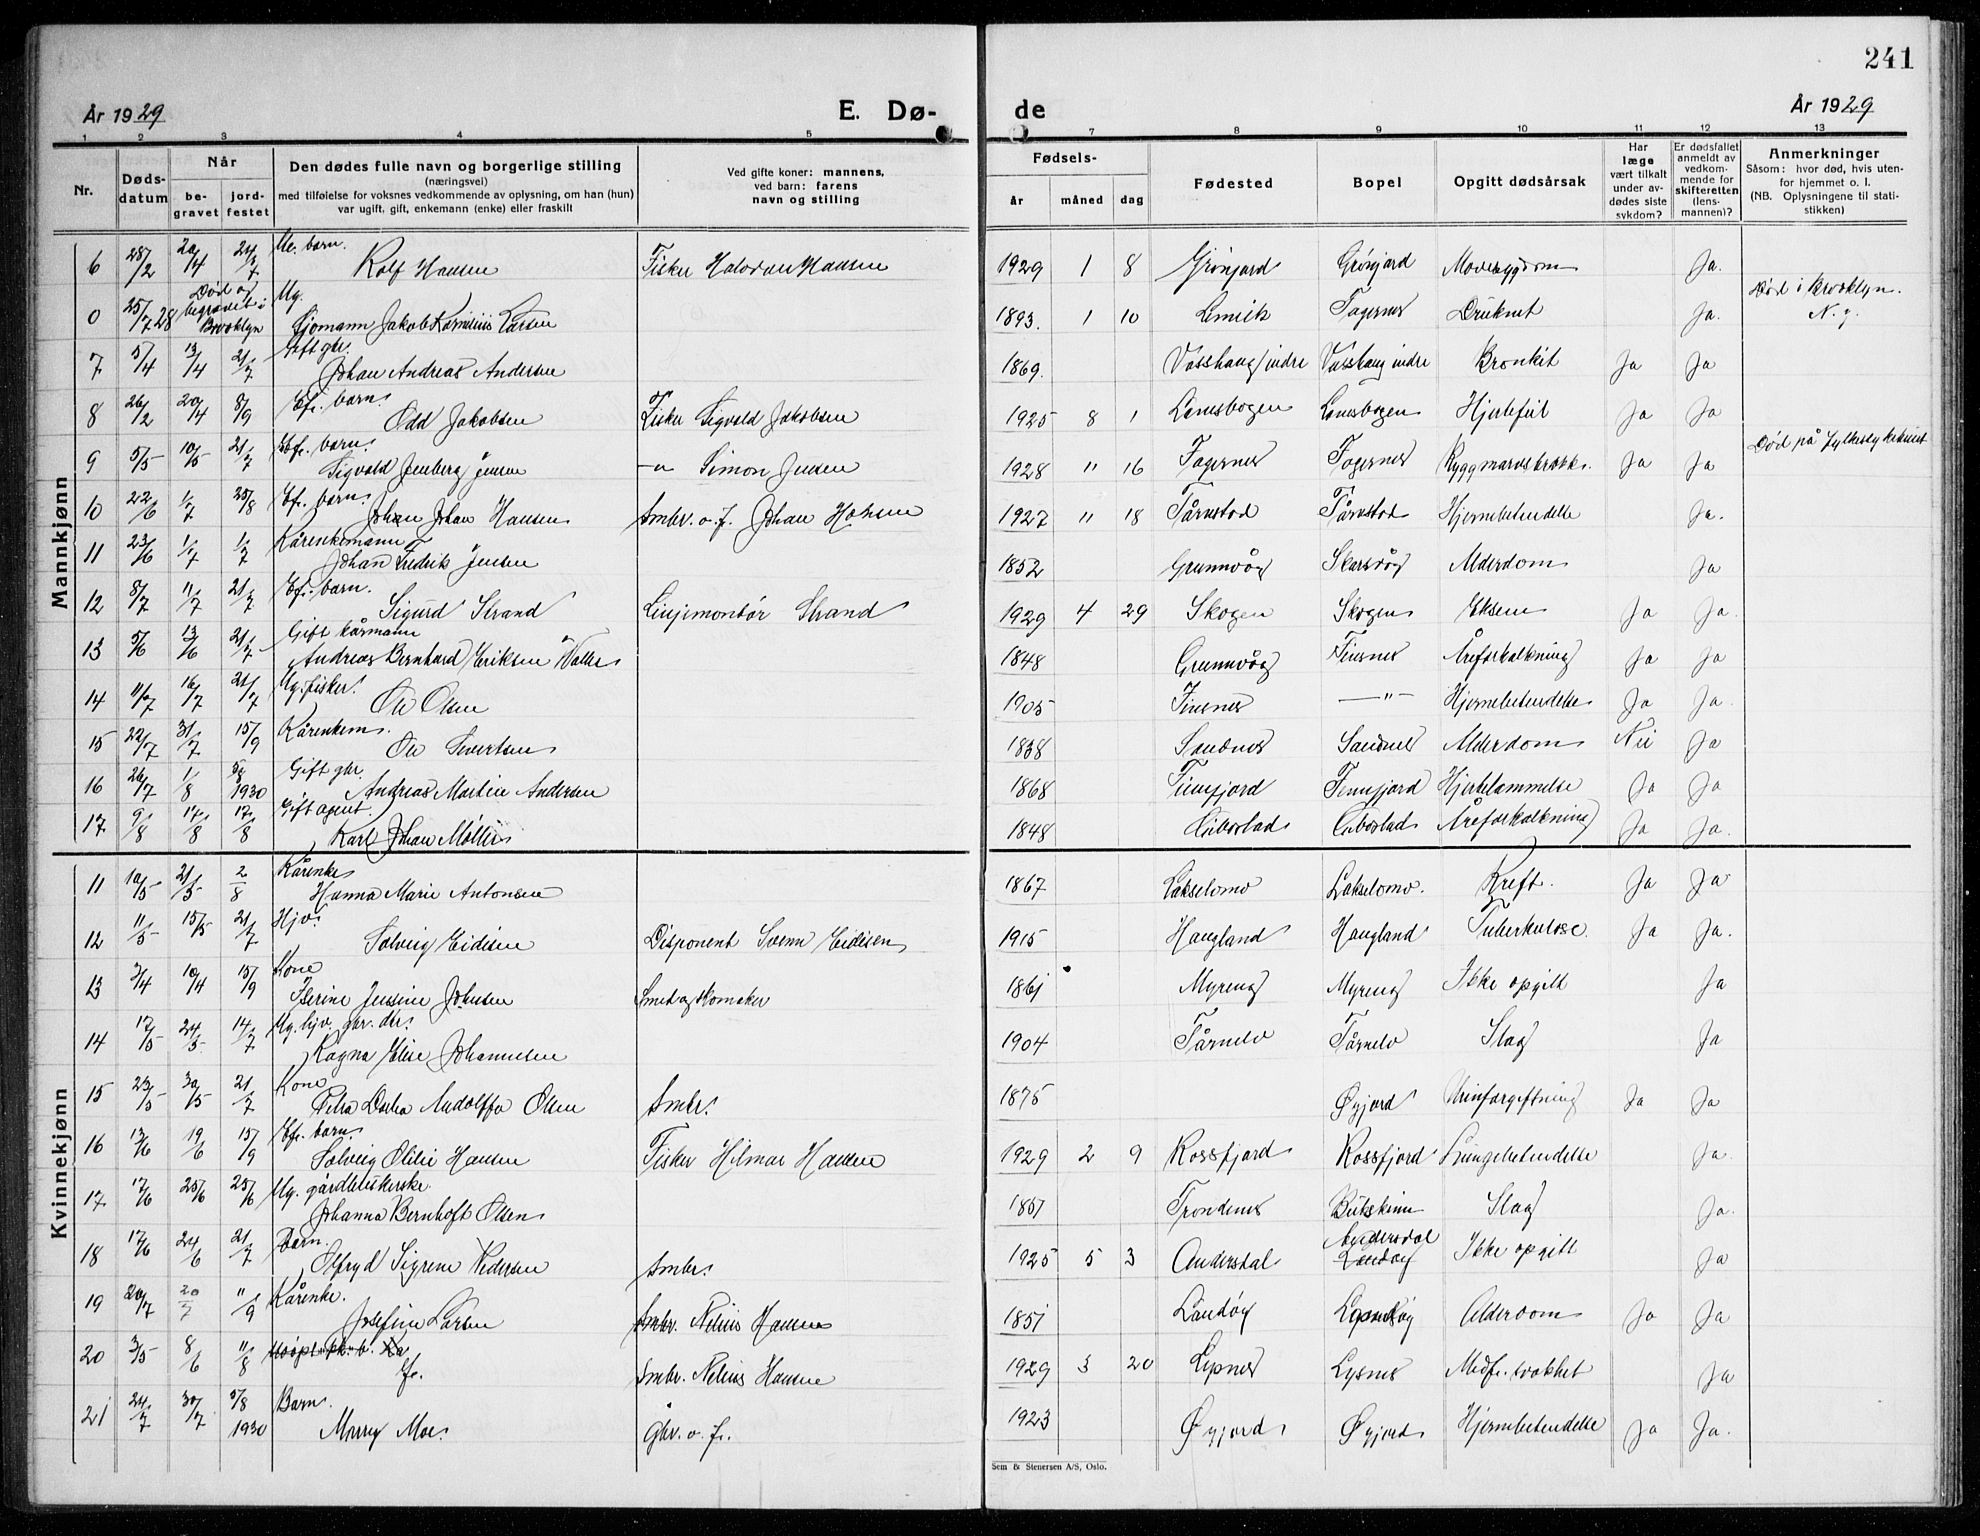 241
År 1929 E. Dø- de År 1929
1 2 3 4 5 7 8 9 10 11 12 13
Nr. Døds-datum Når be-gravet jord-festet
Den dødes fulle navn og borgerlige stilling
(næringsvei)
med tilføielse for voksnes vedkommende av oplysning, om han (hun)
var ugift, gift, enkemann (enke) eller fraskilt
Ved gifte koner: mannens,
ved barn: farens
navn og stilling
Fødsels-
år måned dag
Fødested Bopel Opgitt dødsårsak
Har læge vært tilkalt under av-dødes siste sykdom?
Er dødsfallet anmeldt av vedkom-mende for skifteretten (lens-mannen)?
Anmerkninger
Såsom: hvor død, hvis uten-
for hjemmet o. l.
(NB. Oplysningene til stati-
stikken)
Mannkjønn
6 28/2 20/4 21/7 Ue. barn. Rolf Hansen Fisker Halvdan Hansen 1929 1 8 Grønjord Grønjord Ja.
0 25/7 28 Død og begravet i Brooklyn Ug. Sjømann Jakob Kornelius Larsen 1893. 1 10 Lenvik Fagernes Druknet Ja. Død i Brooklyn. N. y.
7 5/4 13/4 21/7 Gift gbr. Johan Andreas Andersen 1869. Vasshaug indre Vasshaug indre Bronkit Ja Ja
8 26/2 20/4 8/9 Ef. barn. Odd Jakobsen Fisker Sigvald Jakobsen 1925 8 1 Hjertefeil Ja Ja
9 5/5 10/5 21/7 Ef. barn. Sigvald Jenberg Jensen —„— Simon Jensen 1928 11 16 Fagernes Fagernes Ja Ja Død på fylkessykehuset
10 22/6 1/7 25/8 Ef. barn. Johan Johan Hansen Smbr. o. f. Johan Hansen 1927 11 18 Tårnstad Tårnstad Hjernebetendelse Ja.
11 23/6 1/7 1/7 Kårenkemann Johan Fredrik Jensen 1852 Grunnvåg Skarsvåg Alderdom Ja
12 8/7 11/7 21/7 Ef. barn. Sigurd Strand Linjemontør Strand 1929 4 29 Skogen Skogen Eksem Ja Ja.
13 5/6 13/6 21/7 Gift kårmann Andreas Bernhard Eriksen Valle 1848 Grunnvåg Finsnes Åreforkalkning Ja Ja
14 11/7 16/7 21/7 Ug. fisker. Ole Olsen 1905 Finsnes —„— Hjernebetendelse Ja Ja.
15 22/7 31/7 15/9 Kårenkem. Ole Sivertsen 1838 Sandnes Sandnes Alderdom Nei Ja
16 26/7 1/8 5/8 1930 Gift gbr. Andreas Martin Andersen 1868 Finnfjord Finnfjord Hjertelammelse Ja Ja
17 9/8 17/8 17/8 Gift agent. Karl Johan Møller 1848 Gibostad Gibostad Åreforkalkning Ja Ja.
Kvinnekjønn
11 10/5 21/5 2/8 Kårenke Hanna Marie Antonsen 1867 Lakselomo Lakselomo. Kreft. Ja Ja
12 11/5 15/5 21/7 Hjv. Solveig Eidisen Disponent Svenn Eidisen 1915 Haugland Haugland Tuberkulose. Ja Ja.
13 3/4 10/4 15/9 Kone Iserine Jensine Johnsen Smed og skomaker 1861 Myreng Myreng Ikke opgitt Ja
14 17/5 24/5 14/7 Ug. hjv. gbr. dtr. Ragna Elise Johannesen 1904 Tårnelv Tårnelv Slag Ja
15 23/5 30/5 21/7 Kone Petra Dortea Andolffa Olsen Smbr. 1875 Øyjord Urinforgiftning Ja Ja
16 13/6 19/6 15/9 Ef. barn. Solveig Olilie Hansen Fisker Hilmar Hansen 1929 2 9 Rossfjord Rossfjord Lungebetendelse Ja.
17 17/6 25/6 25/6 Ug. gårdbeskerske Johanna Bernhoft Olsen 1851 Trondenes Bukskinn Slag Ja.
18 17/6 24/6 21/7 Barn. Olfryd Sigrene Pedersen Smbr. 1925 5 3 Andersdal Andersdal Ikke opgitt Ja
19 20/7 20/7 11/9 Kårenke. Josefine Larsen Smbr. Nelius Hansen 1851 Landøy Alderdom Ja Ja
20 3/5 8/6 11/8 Ef. Smbr. Nelius Hansen 1929 3 20 Lysnes Lysnes Medf. svakhet Ja
21 24/7 30/7 5/8 1930 Barn. Morry Moe. Gbr. o. f. 1923 Øyjord Øyjord Hjernebetendelse Ja Ja.
Sem & Stenersen A/S, Oslo.